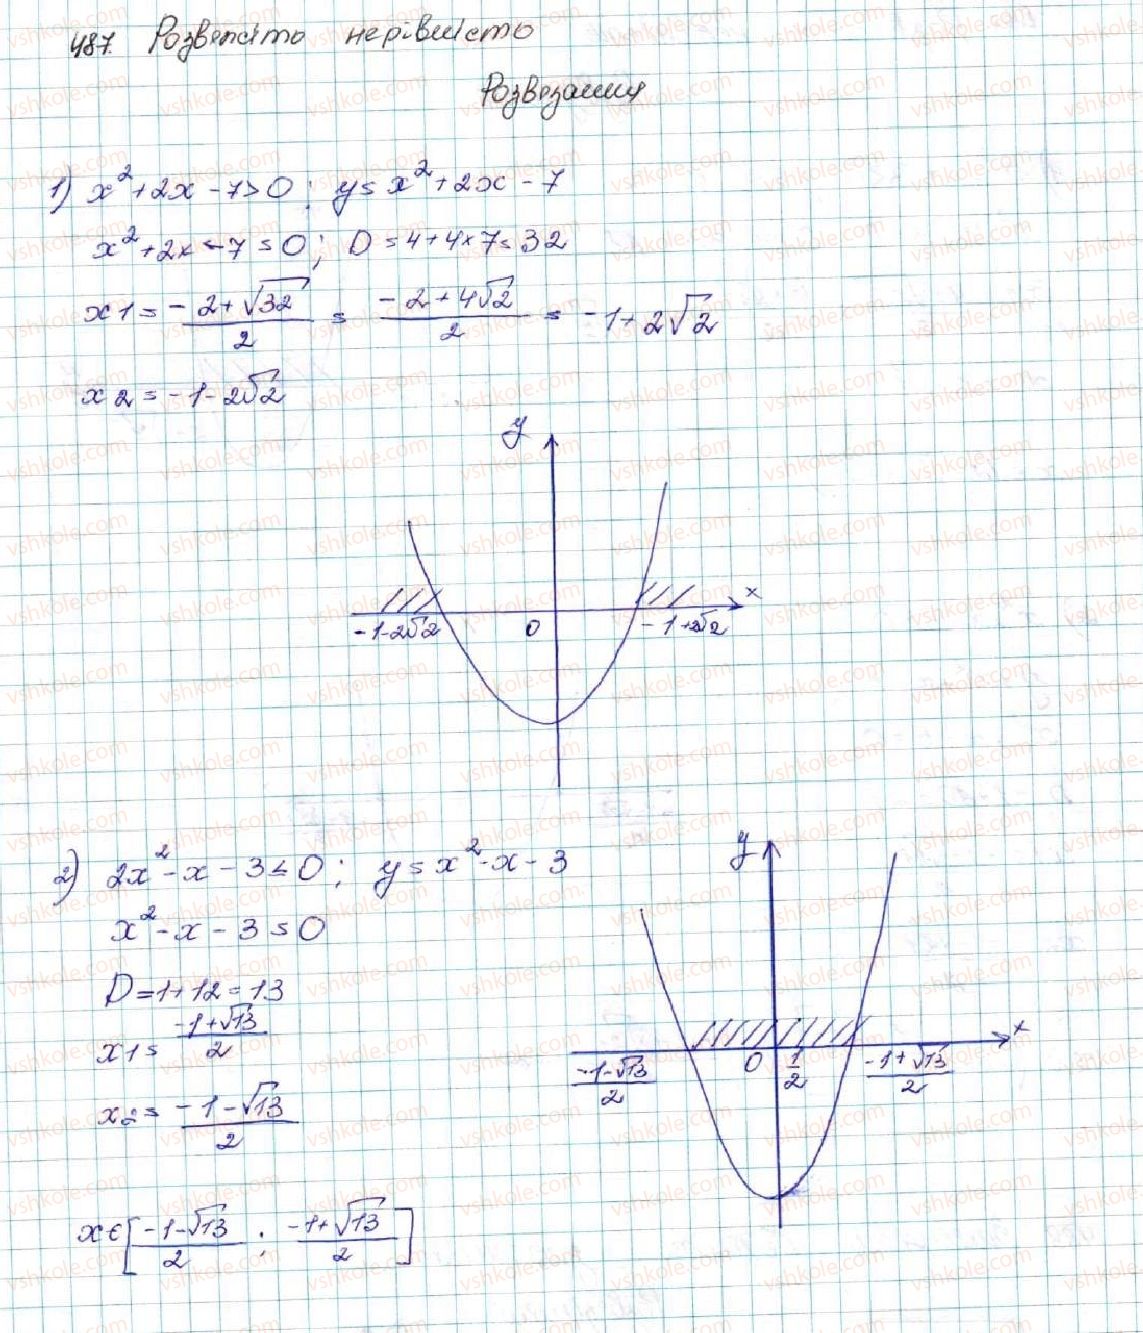 487. Розвяжіть нерівність
Розвязання
1) x² + 2x - 7 > 0; y = x² + 2x - 7
x² + 2x - 7 = 0; D = 4 + 4 × 7 = 32
x1 = (-2 + √32)/2 = (-2 + 4√2)/2 = -1 + 2√2
x2 = -1 - 2√2
y
x
-1-2√2 0 -1+2√2
2) 2x² - x - 3 ≤ 0; y = x² - x - 3
x² - x - 3 = 0
D = 1 + 12 = 13
x1 = (-1 + √13)/2
x2 = (-1 - √13)/2
y
x
(-1-√13)/2 0 1/2 (-1+√13)/2
x ∈ [(-1-√13)/2 ; (-1+√13)/2]